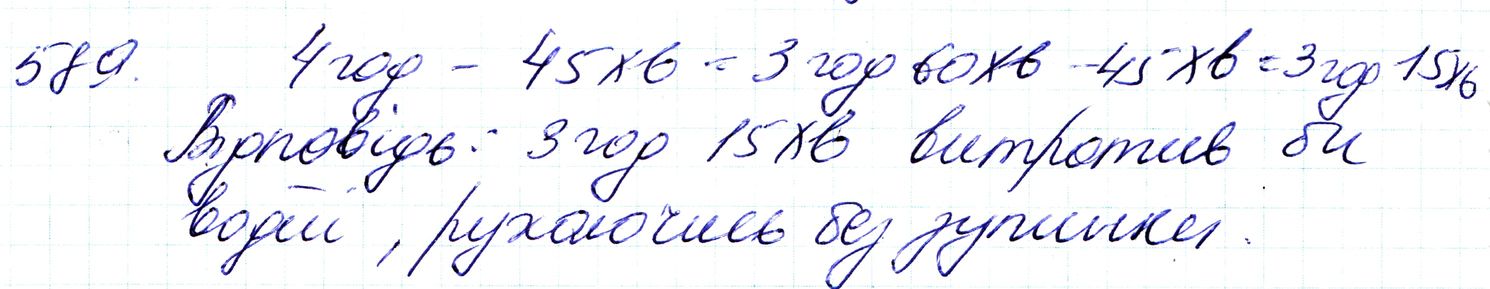 589. 4 год - 45 хв = 3 год 60 хв - 45 хв = 3 год 15 хв
Відповідь: 3 год 15 хв витратив би
водій, рухаючись без зупинки.